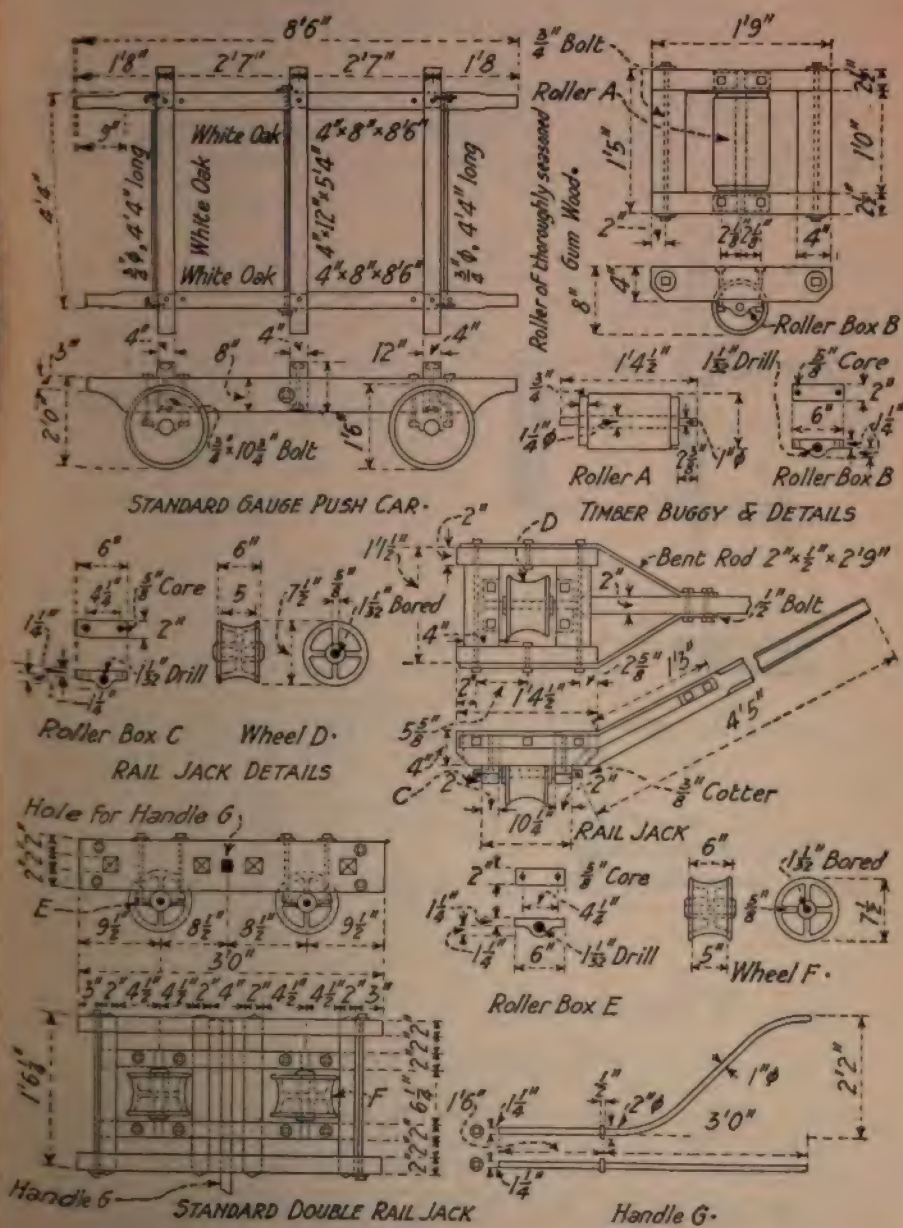 8'6"
1'8" 2'7" 2'7" 1'8
9"
4'4"
White Oak 4"×8"×8'6"
3/4"φ, 4'4" long
White Oak
4"×12"×5'4"
3/4"φ, 4'4" long
White Oak 4"×8"×8'6"
4" 4" 4"
3" 8" 12"
2'0" 1'6"
3/4"×10 3/4" Bolt
STANDARD GAUGE PUSH CAR.
3/4" Bolt 1'9"
Roller A
2 1/2"
1'5" 1'0"
2 1/2"
Roller of thoroughly seasoned
Gum Wood.
2" 2 1/8" 2 1/8" 4"
8" 4"
Roller Box B
1'4 1/2" 1 1/32" Drill 5/8" Core
2"
6"
1 1/4"
1 1/4"φ 2 3/8" 1"φ
Roller A Roller Box B
TIMBER BUGGY & DETAILS
6" 6"
4 1/4" 5/8" Core 5 7 1/2" 5/8" 1 1/32" Bored
2"
1 1/4" 1 1/32" Drill
1 1/4"
Roller Box C Wheel D.
RAIL JACK DETAILS
2" D
1'1 1/2" Bent Rod 2"×1/2"×2'9"
2"
1/2" Bolt
4"
2" 1'4 1/2" 2 5/8" 1'3"
5 5/8" 4'5"
4"
C 2" 2" 3/8" Cotter
10 1/4"
RAIL JACK
Hole for Handle G
2" 2" 2"
E
9 1/2" 8 1/2" 8 1/2" 9 1/2"
3'0"
3" 2" 4 1/2" 4 1/2" 2" 4" 2" 4 1/2" 4 1/2" 2" 3"
1'6 1/4" 2" 2" 2" 6 1/4" 2" 2" 2"
F
Handle G
STANDARD DOUBLE RAIL JACK
2" 5/8" Core
1 1/4" 4 1/2"
1 1/4" 6" 1 1/32" Drill
Roller Box E
6" 1 1/32" Bored
5/8" 7 1/2
5"
Wheel F.
1"φ 2'2"
1'6" 1 1/4" 2"φ 3'0"
1 1/4"
Handle G.